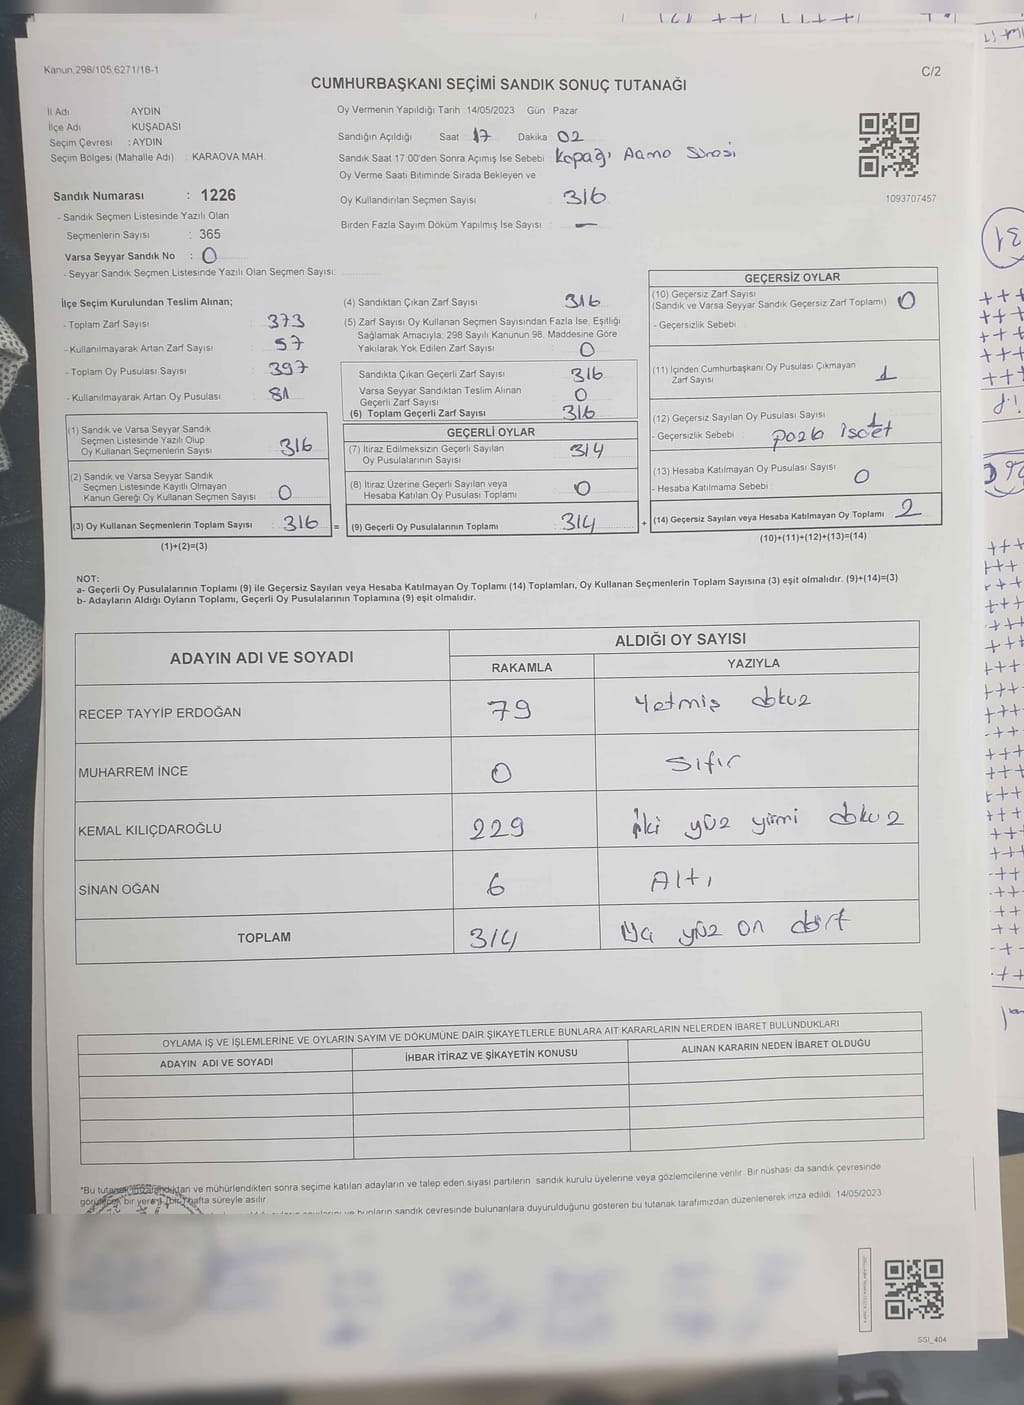 Kanun.298/105,6271/18-1
C/2
CUMHURBAŞKANI SEÇİMİ SANDIK SONUÇ TUTANAĞI
İl Adı AYDIN
İlçe Adı KUŞADASI
Seçim Çevresi : AYDIN
Seçim Bölgesi (Mahalle Adı) : KARAOVA MAH.
Oy Vermenin Yapıldığı Tarih : 14/05/2023 Gün : Pazar
Sandığın Açıldığı Saat 17 Dakika 02
Sandık Saat 17:00'den Sonra Açımış İse Sebebi Kapağı Açma Süresi
Oy Verme Saati Bitiminde Sırada Bekleyen ve
Oy Kullandırılan Seçmen Sayısı 316
Birden Fazla Sayım Döküm Yapılmış İse Sayısı : —
1093707457
Sandık Numarası : 1226
- Sandık Seçmen Listesinde Yazılı Olan
Seçmenlerin Sayısı : 365
Varsa Seyyar Sandık No : 0
- Seyyar Sandık Seçmen Listesinde Yazılı Olan Seçmen Sayısı:
İlçe Seçim Kurulundan Teslim Alınan;
- Toplam Zarf Sayısı : 373
- Kullanılmayarak Artan Zarf Sayısı : 57
- Toplam Oy Pusulası Sayısı : 397
- Kullanılmayarak Artan Oy Pusulası : 81
(1) Sandık ve Varsa Seyyar Sandık
Seçmen Listesinde Yazılı Olup
Oy Kullanan Seçmenlerin Sayısı : 316
(2) Sandık ve Varsa Seyyar Sandık
Seçmen Listesinde Kayıtlı Olmayan
Kanun Gereği Oy Kullanan Seçmen Sayısı : 0
(3) Oy Kullanan Seçmenlerin Toplam Sayısı : 316 =
(1)+(2)=(3)
(4) Sandıktan Çıkan Zarf Sayısı 316
(5) Zarf Sayısı Oy Kullanan Seçmen Sayısından Fazla İse, Eşitliği
Sağlamak Amacıyla; 298 Sayılı Kanunun 98. Maddesine Göre
Yakılarak Yok Edilen Zarf Sayısı : 0
Sandıkta Çıkan Geçerli Zarf Sayısı 316
Varsa Seyyar Sandıktan Teslim Alınan
Geçerli Zarf Sayısı 0
(6) Toplam Geçerli Zarf Sayısı 316
GEÇERLİ OYLAR
(7) İtiraz Edilmeksizin Geçerli Sayılan
Oy Pusulalarının Sayısı : 314
(8) İtiraz Üzerine Geçerli Sayılan veya
Hesaba Katılan Oy Pusulası Toplamı : 0
(9) Geçerli Oy Pusulalarının Toplamı : 314 +
GEÇERSİZ OYLAR
(10) Geçersiz Zarf Sayısı
(Sandık ve Varsa Seyyar Sandık Geçersiz Zarf Toplamı) : 0
- Geçersizlik Sebebi :
(11) İçinden Cumhurbaşkanı Oy Pusulası Çıkmayan
Zarf Sayısı 1
(12) Geçersiz Sayılan Oy Pusulası Sayısı 1
- Geçersizlik Sebebi
(13) Hesaba Katılmayan Oy Pusulası Sayısı : 0
- Hesaba Katılmama Sebebi :
(14) Geçersiz Sayılan veya Hesaba Katılmayan Oy Toplamı 2
(10)+(11)+(12)+(13)=(14)
NOT:
a- Geçerli Oy Pusulalarının Toplamı (9) ile Geçersiz Sayılan veya Hesaba Katılmayan Oy Toplamı (14) Toplamları, Oy Kullanan Seçmenlerin Toplam Sayısına (3) eşit olmalıdır. (9)+(14)=(3)
b- Adayların Aldığı Oyların Toplamı, Geçerli Oy Pusulalarının Toplamına (9) eşit olmalıdır.
ADAYIN ADI VE SOYADI ALDIĞI OY SAYISI
RAKAMLA YAZIYLA
RECEP TAYYİP ERDOĞAN 79 Yetmiş dokuz
MUHARREM İNCE 0 Sıfır
KEMAL KILIÇDAROĞLU 229 İki yüz yirmi dokuz
SİNAN OĞAN 6 Altı
TOPLAM 314 yüz on dört
OYLAMA İŞ VE İŞLEMLERİNE VE OYLARIN SAYIM VE DÖKÜMÜNE DAİR ŞİKAYETLERLE BUNLARA AİT KARARLARIN NELERDEN İBARET BULUNDUKLARI
ADAYIN ADI VE SOYADI İHBAR İTİRAZ VE ŞİKAYETİN KONUSU ALINAN KARARIN NEDEN İBARET OLDUĞU
*Bu tutanak imzalandıktan ve mühürlendikten sonra seçime katılan adayların ve talep eden siyasi partilerin sandık kurulu üyelerine veya gözlemcilerine verilir. Bir nüshası da sandık çevresinde
görülecek bir yere 1 (bir) hafta süreyle asılır.
ve bunların sandık çevresinde bulunanlara duyurulduğunu gösteren bu tutanak tarafımızdan düzenlenerek imza edildi. 14/05/2023
SSI_404